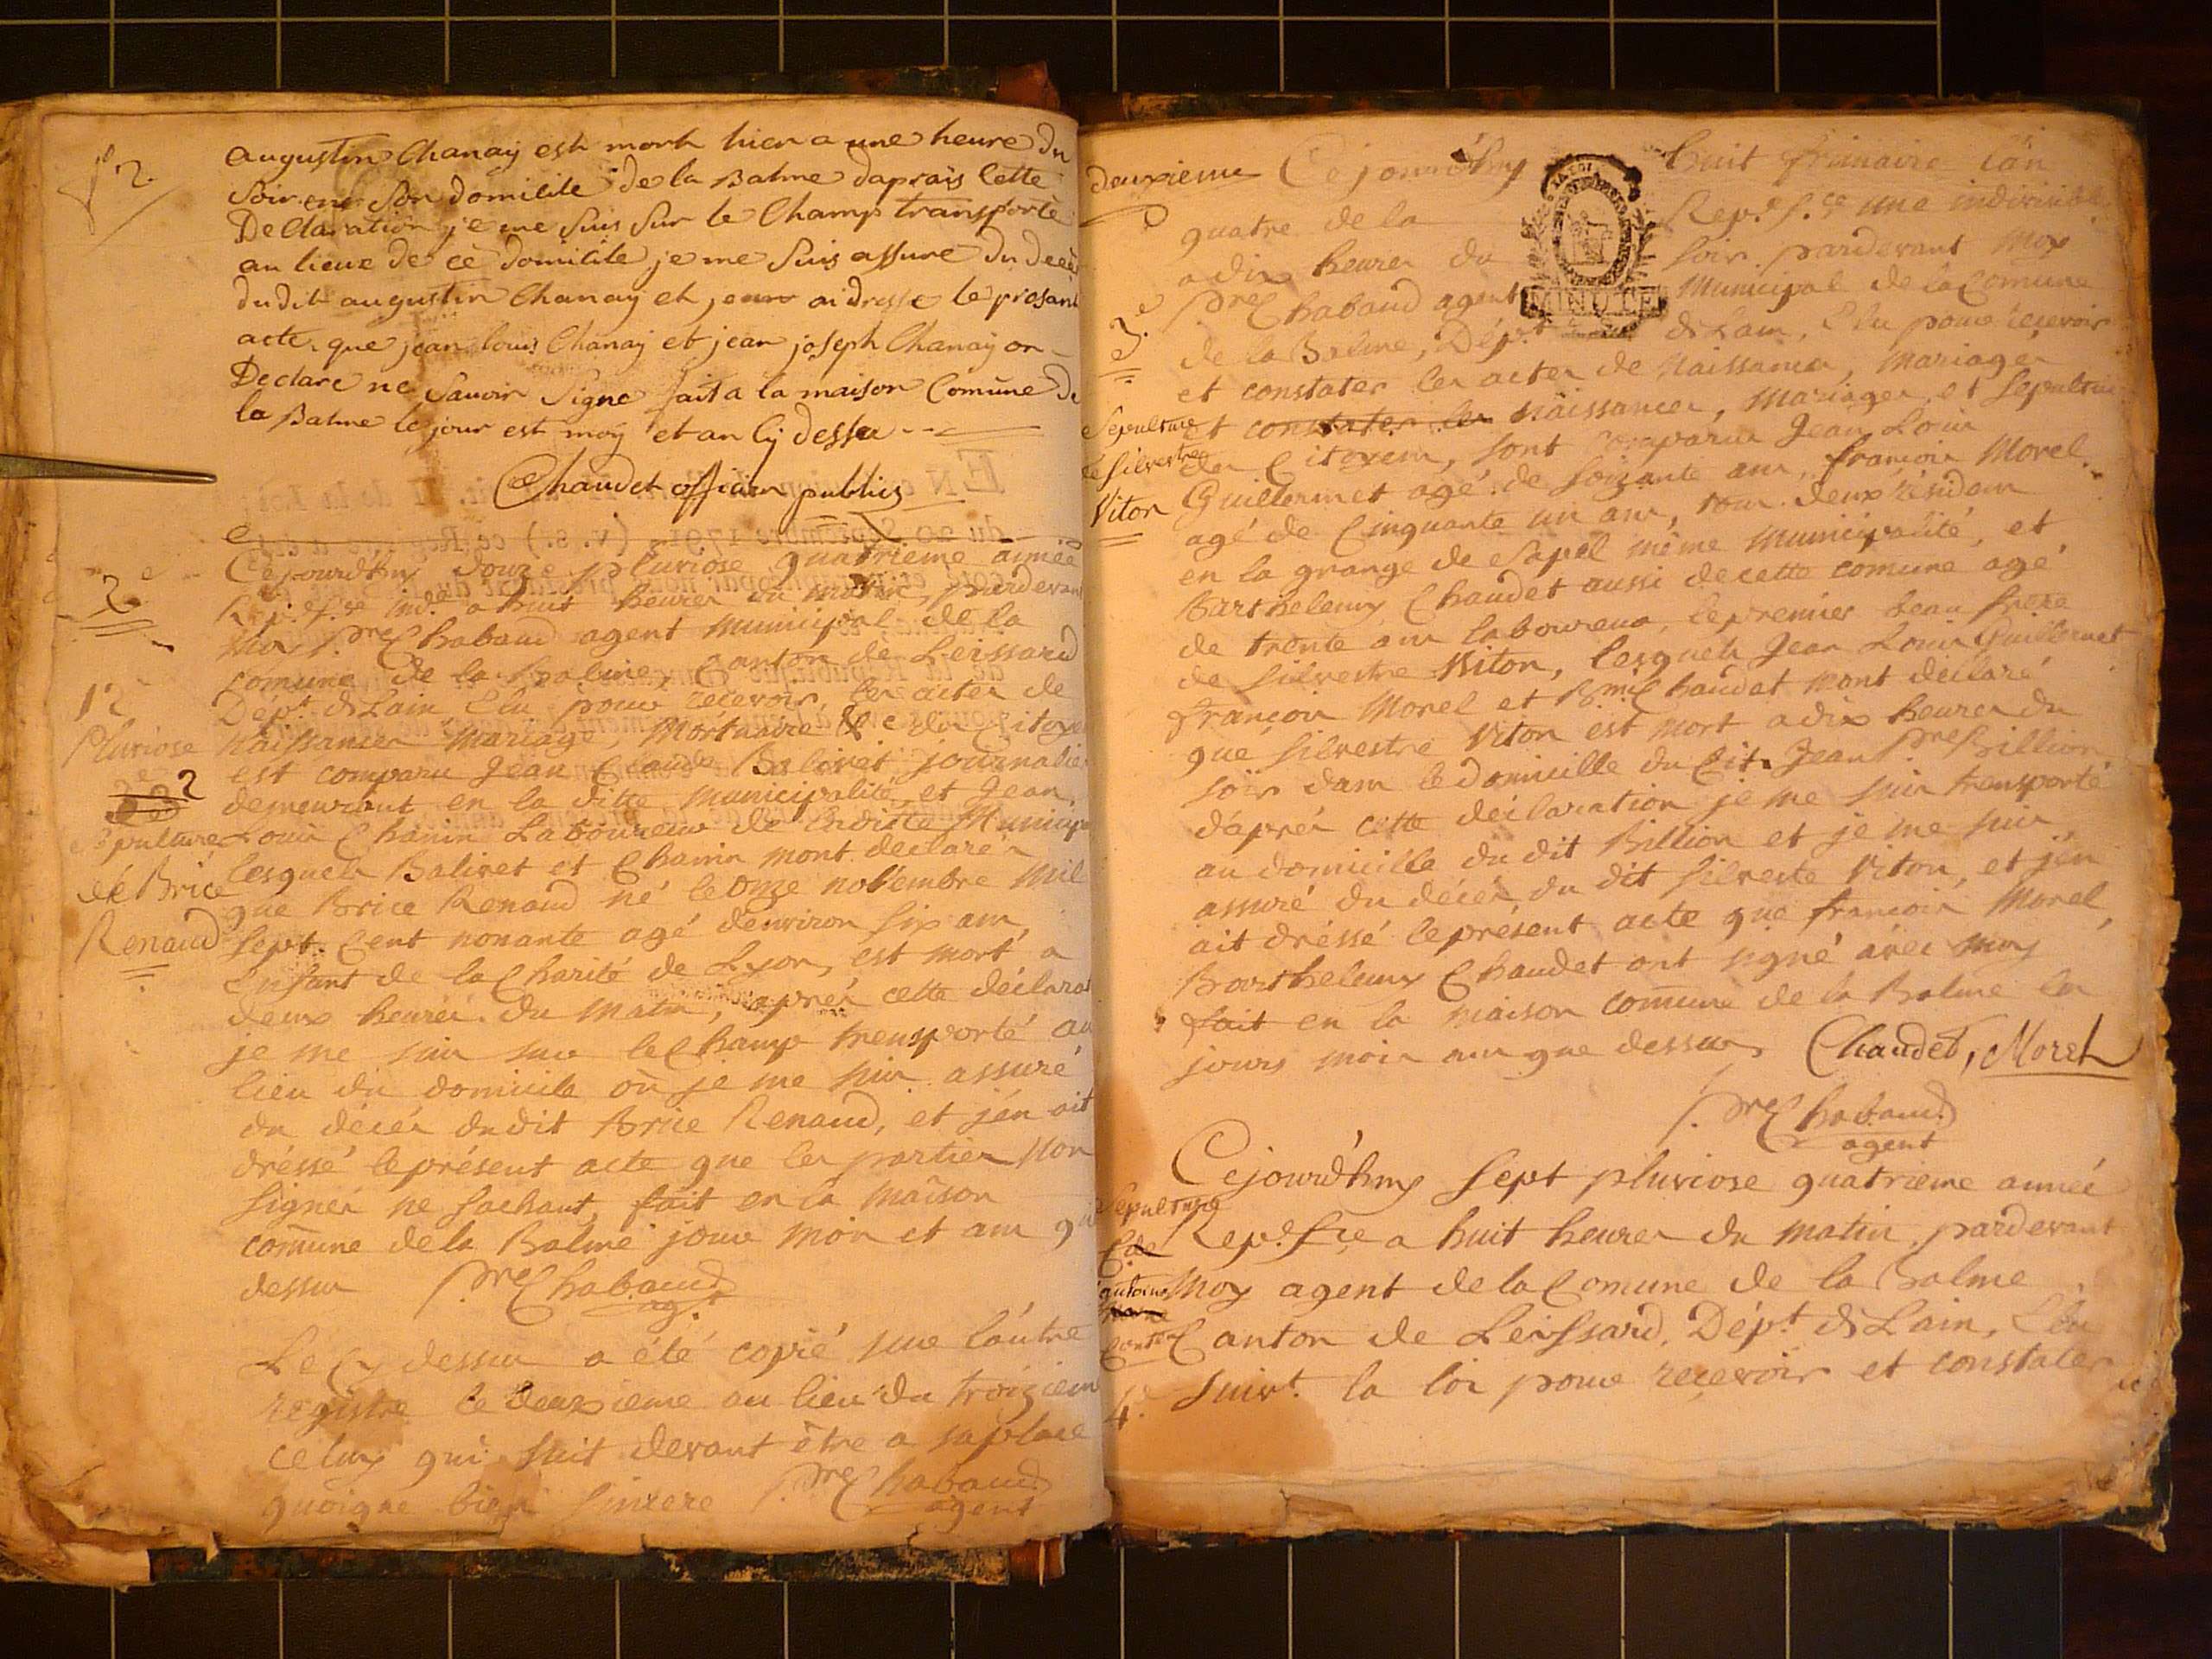 f.º 2.
augustin Chanaÿ est mort hier a une heure du
Soir en Son domicile de la Balme daprais Cette
Declaration je me Suis Sur le Champ transporté
au lieux de cè domicile je me Suis assure du decès
dudit augustin Chanay et j ai dresse le presant
acte que jean louis Chanaÿ et jean joseph Chanaÿ on
Declare ne Savoir Signe fait a la maison Comune de
la Balme le jour est moÿ et an Cÿ dessu
Chaudet officier publics
2e
Cejourd'huy douze pluviose quatrieme année
Rep. f.se ind. a huit heures du matin, pardevant
Moy p.re Chabaud agent Municipal de la
Comune de la Balme, Canton de Leissard
Dépt. de Lain Elu pour recevoir les actes de
12
Pluviose
Naissances Mariage, Mortuaire &c des Citoyen
est comparu Jean Claude Balivet journalier
2
demeurant en la ditte Municipalité, et Jean
Sepulture
Louis Chanin Laboureur de laditte Municip
lesquels Balivet et Chanin mont declarés
de Brice
que Brice Renaud né le onze novembre Mil
Renaud
Sept Cent nonante agé d'environ six ans,
Enfant de la Charité de Lyon, est mort a
deux heures du matin, après cette déclarat
je me suis sur le Champ transporté au
lieu du domicile où je me suis assuré
du décès dudit Brice Renaud, et j'én ait
dréssé le présent acte que les parties Non
Signés ne Sachant, fait en la Maison
comune de la Balme jour mois et ans que
dessus p.re Chabaud
ag.t
Le Cy dessus a été copié sur l'autre
registre le deuxieme au lieu du troizieme
celuy qui suit devant être a saplace
quoique bien sinxere p.re Chabaud
agent
deuxieme Cejourd'huy huit frimaire l'an
quatre de la Rep.e f.ce une indivisible
a dix heures du soir pardevant Moy
3.e
p.re Chabaud agent Municipal de la Comune
de la Balme, Dép.t de Lain, Elu pour recevoir
et constater les actes de Naissances, Mariages
Sepulture
et constater les Naissances, Mariages et Sepulture
de Silvestre
des Citoyens, sont comparus Jean Louis
Viton
Guillermet agé de soixante ans, françois Morel
agé de Cinquante un ans, tous deux résidans
en la grange de Sapel même Municipalité, et
Barthelemy Chaudet aussi de cette comune agé
de trente ans laboureur, le premier beau frere
de Silvestre Viton, lesquels Jean Louis Guillermet
françois Morel et B.mi Chaudet mont déclaré
que Silvestre Viton est mort a dix heures du
soir dans le domicille du Cit. Jean p.re Billion
d'après cette déclaration je me suis transporté
au domicille du dit Billion et je me suis
assuré du décès du dit Silveste Viton, et j'én
ait dréssé le présent acte que françois Morel,
Barthelemy Chaudet ont signé avec moy
fait en la maison comune de la Balme les
jours mois ans que dessus, Chaudet, Morel
p.re Chabaud
agent
Cejourd'huy Sept pluviose quatrieme année
Sepulture
Rep.e f.ce a huit heures du matin pardevant
de
antoine
Moy agent de la Comune de la Balme
Canton de Leissard, Dép.t de Lain, Elu
4.e
suiv.t la loi pour recevoir et constater
MINUTE